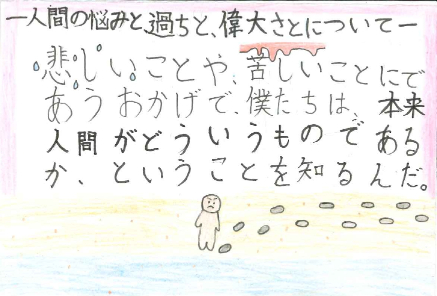 ー人間の悩みと、過ちと、偉大さとについてー
悲しいことや、苦しいことにで
あうおかげで、僕たちは、本来
人間がどういうものである
か、ということを知るんだ。